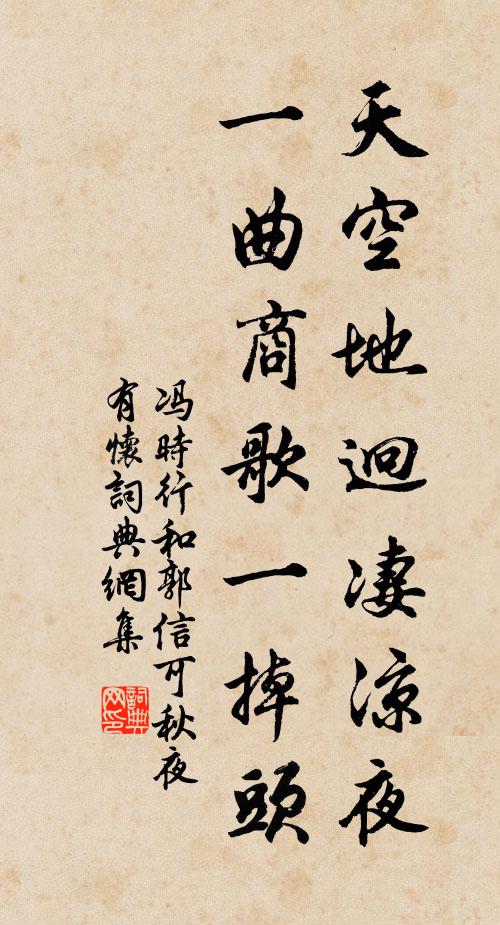 天空地迥凄凉夜
一曲商歌一掉頭
冯時行和郭信可秋夜
有懷詞典網集
詞典
网印